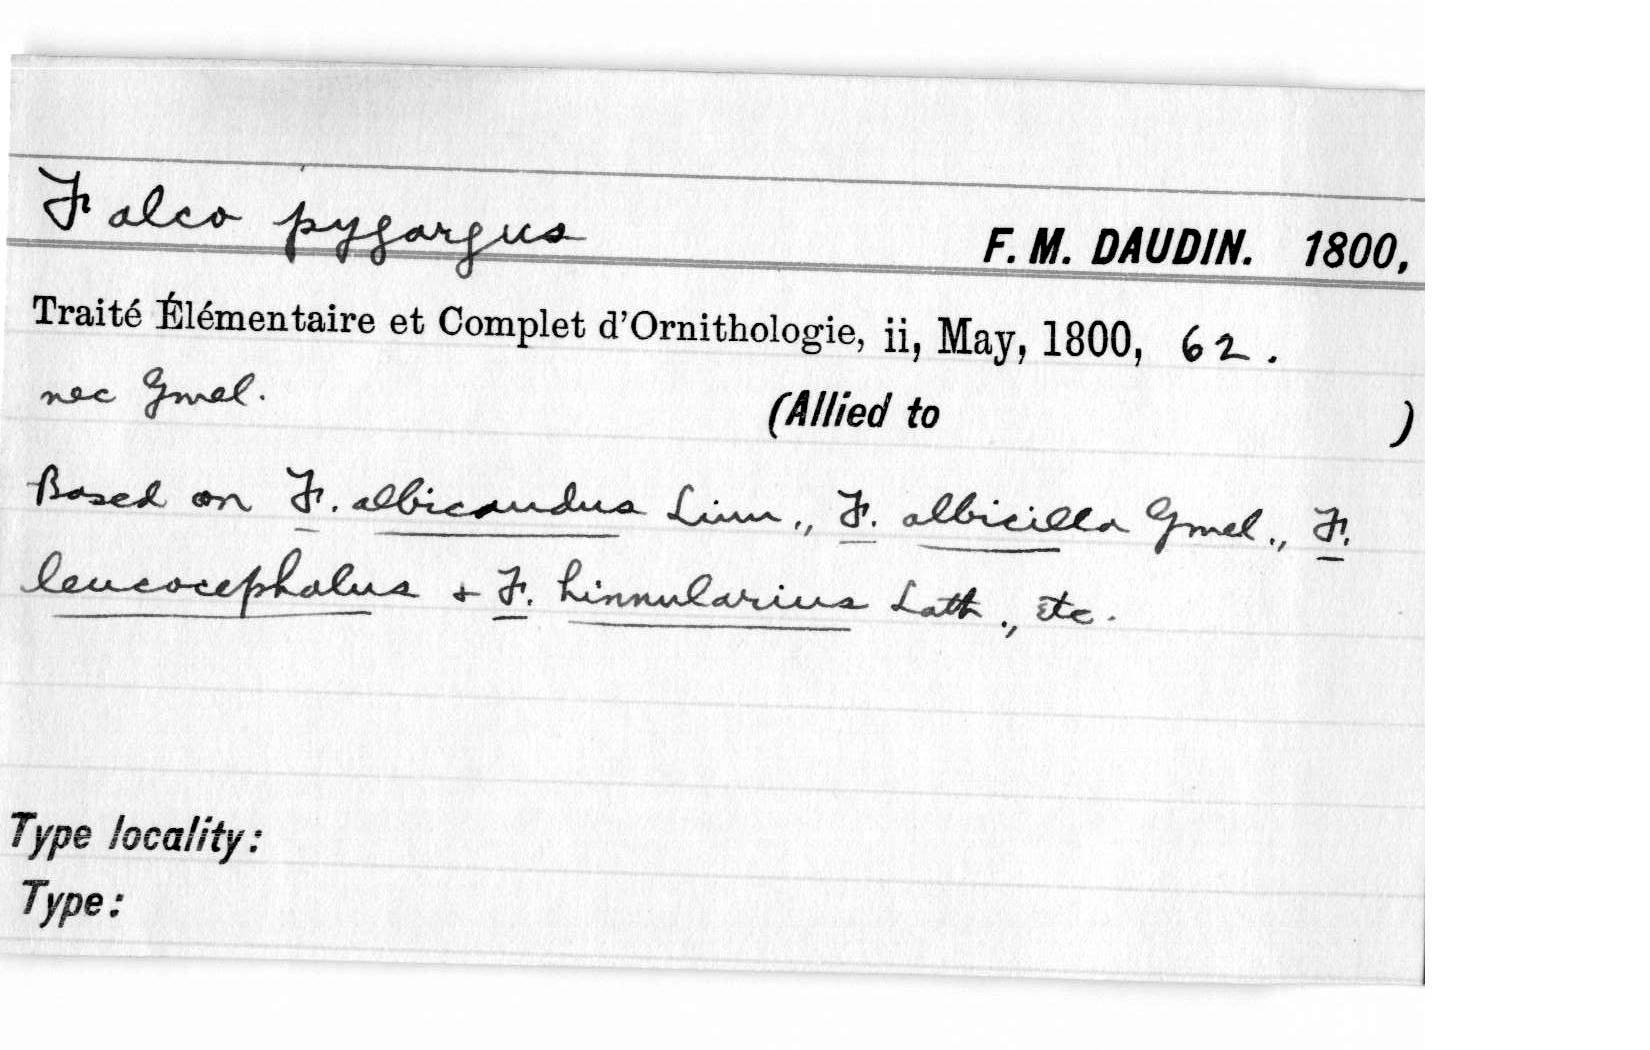 Falco pygargus F. M. DAUDIN. 1800,
Traité Élémentaire et Complet d'Ornithologie, ii, May, 1800, 62.
nec Gmel. (Allied to )
Based on F. albicaudus Linn., F. albicilla Gmel., F.
leucocephalus + F. hinnularius Lath., etc.
Type locality:
Type: